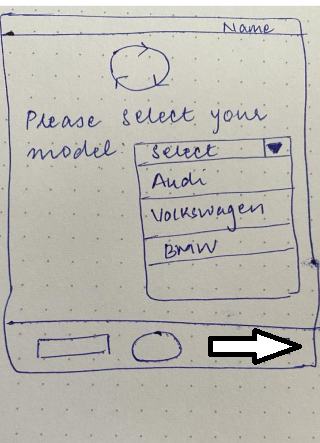 Name
Please select your
model:
Select
Audi
Volkswagen
BMW